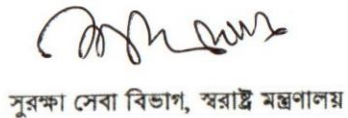 সুরক্ষা সেবা বিভাগ, স্বরাষ্ট্র মন্ত্রণালয়